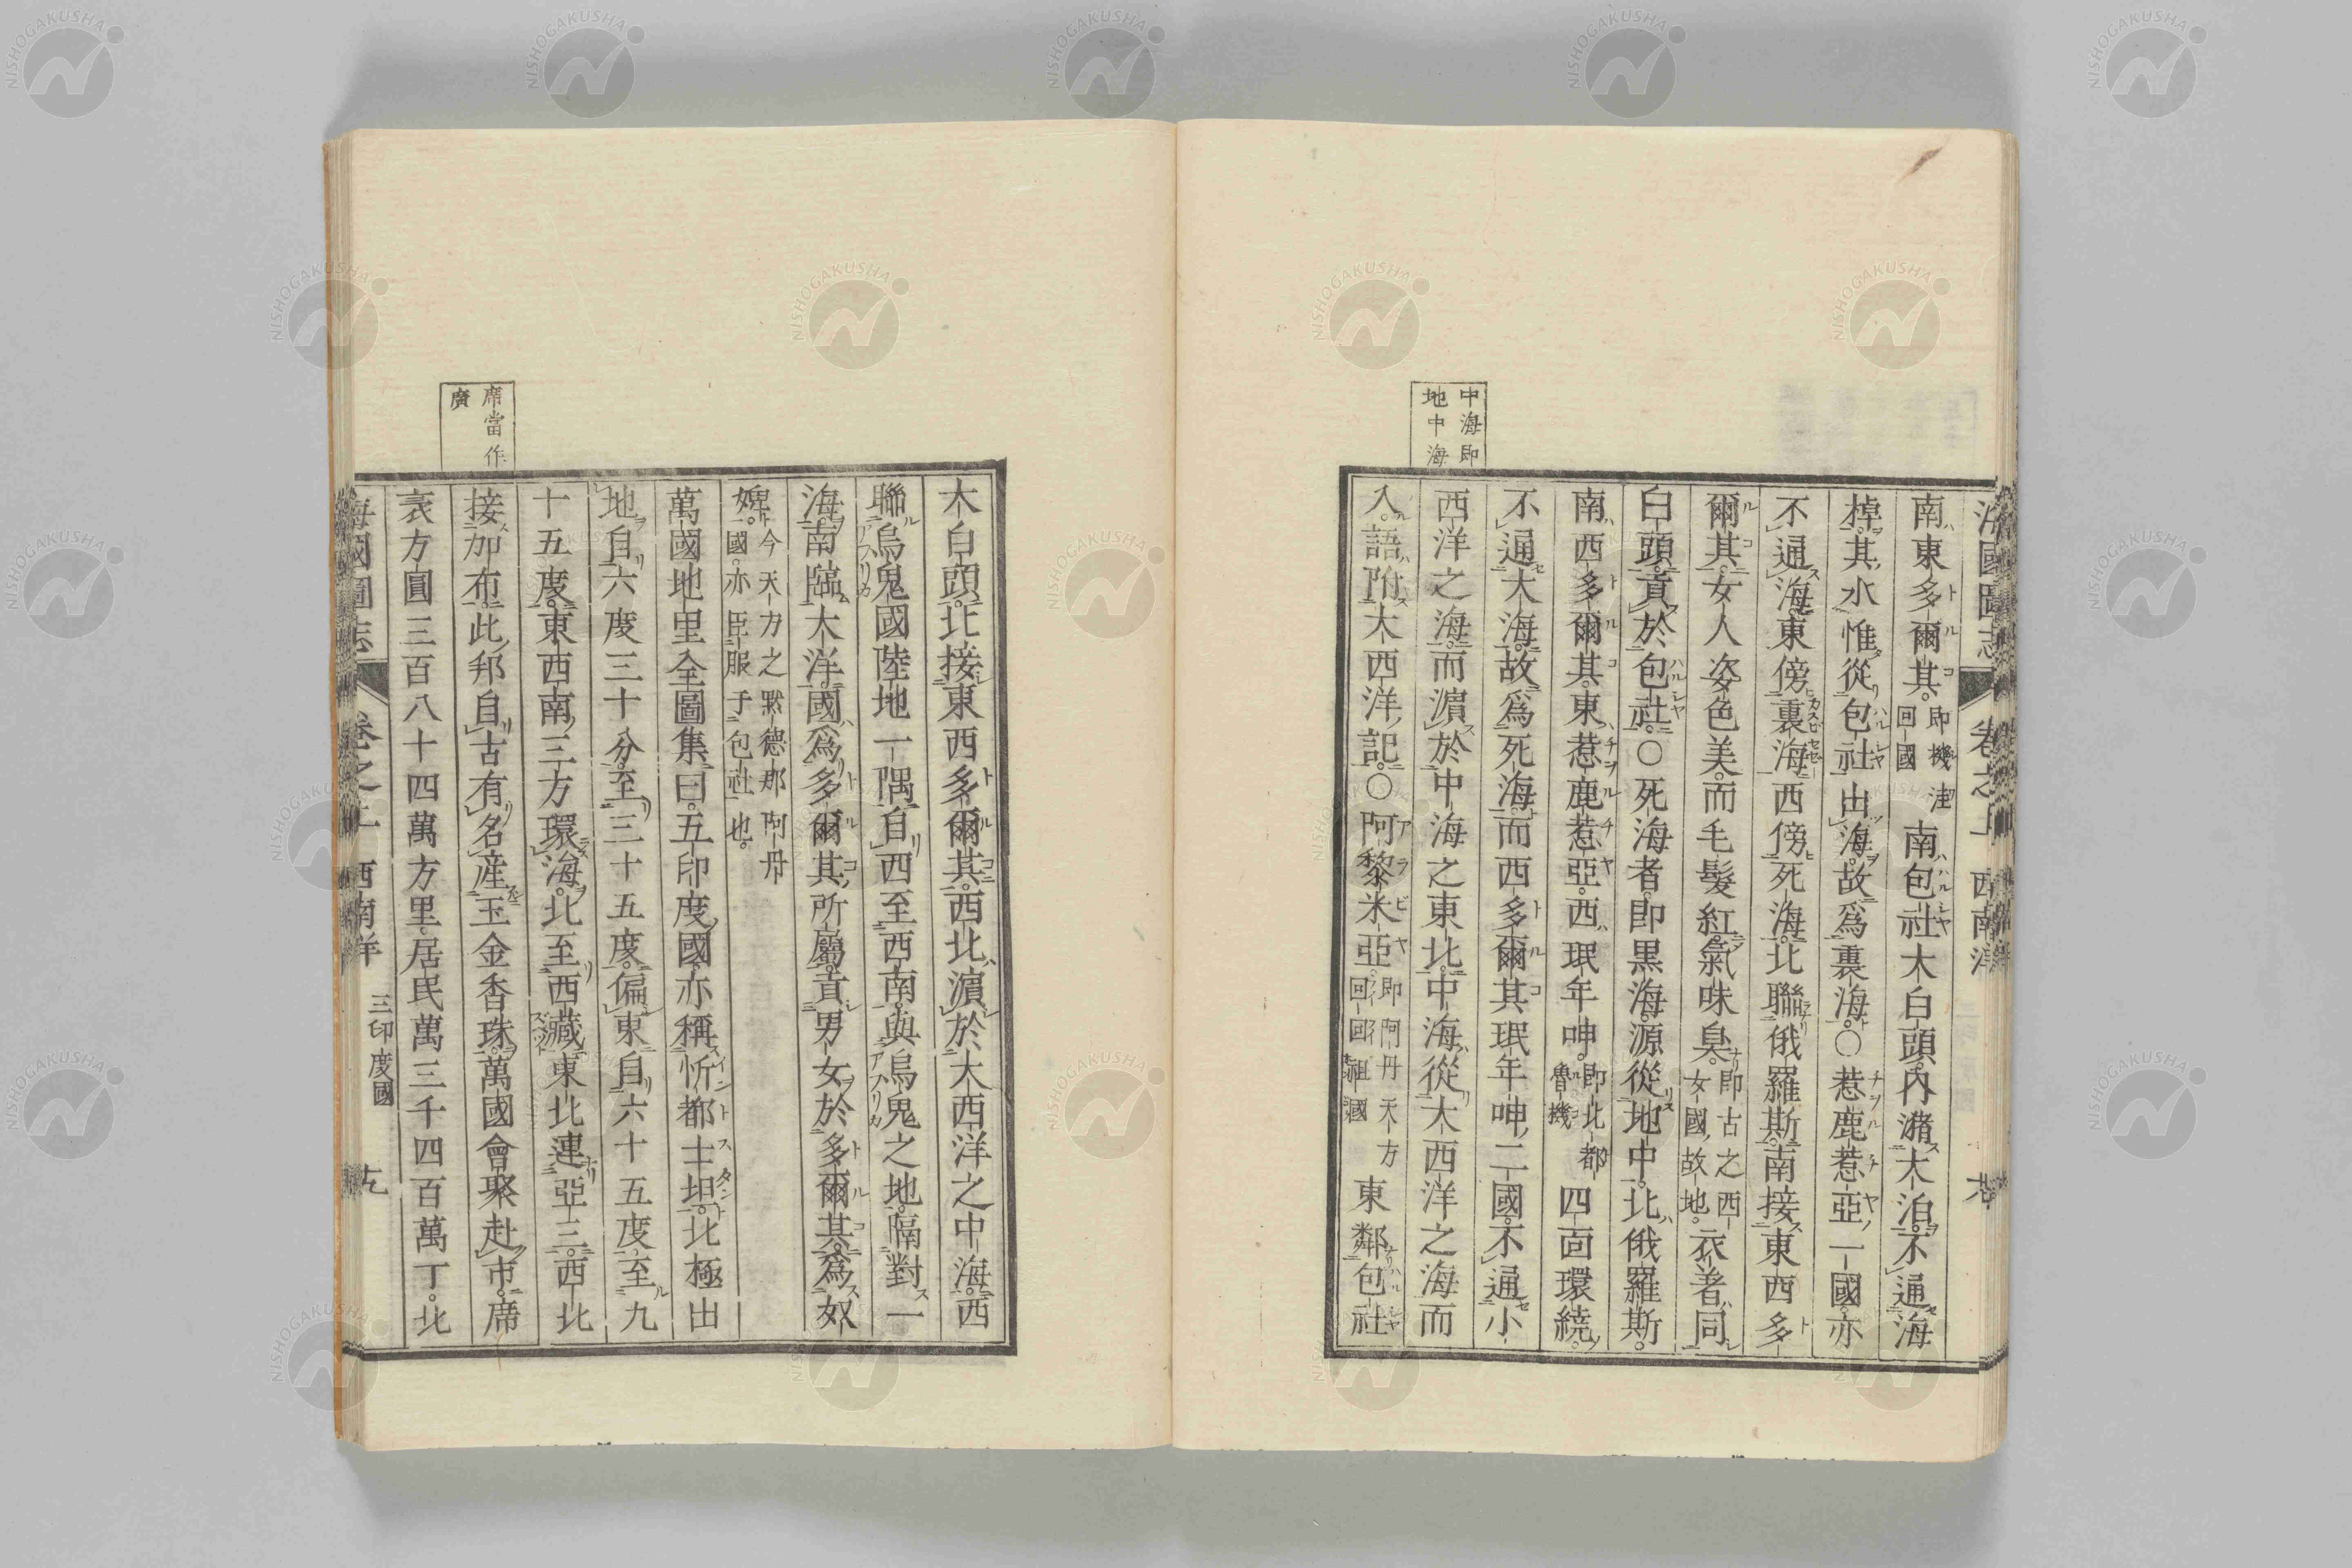 中海即
地中海
南東多爾其。即機洼回國南包社大白頭。內瀦大泊。不通海
棹。其水惟從包社出海。故爲裏海。〇惹鹿惹亞一國。亦
不通海。東傍裏海。西傍死海。北聯俄羅斯。南接東西多
爾其。女人姿色美。而毛髮紅。氣味臭。即古之西女國故地。衣著同
白頭。貢於包社。〇死海者即黑海。源從地中。北俄羅斯。
南西多爾其。東惹鹿惹亞。西珉年呻。即北都魯機四面環繞。
不通大海。故爲死海。而西多爾其珉年呻二國。不通小
西洋之海。而濵於中海之東北。中海從大西洋之海而
入。語附大西洋記。〇阿黎米亞。即阿丹天方回回祖國東鄰包社
海國圖志 卷之上 西南洋
席當作
廣
大白頭。北接東西多爾其。西北濵於大西洋之中海。西
聯烏鬼國陸地一隅。自西至西南。與烏鬼之地。隔對一
海。南臨大洋。國爲多爾其所屬。貢男女於多爾其。爲奴
婢。今天方之黙德那阿丹國。亦臣服于包社也。
萬國地里全圖集曰。五印度國。亦稱忻都士坦。北極出
地自六度三十分。至三十五度。偏東自六十五度至九
十五度。東西南三方環海。北至西藏。東北連亞三。西北
接加布。此邦自古有名産玉金香珠。萬國會聚赴市。席
袤方圓三百八十四萬方里。居民萬三千四百萬丁。北
海國圖志 卷之上 西南洋 三印度國